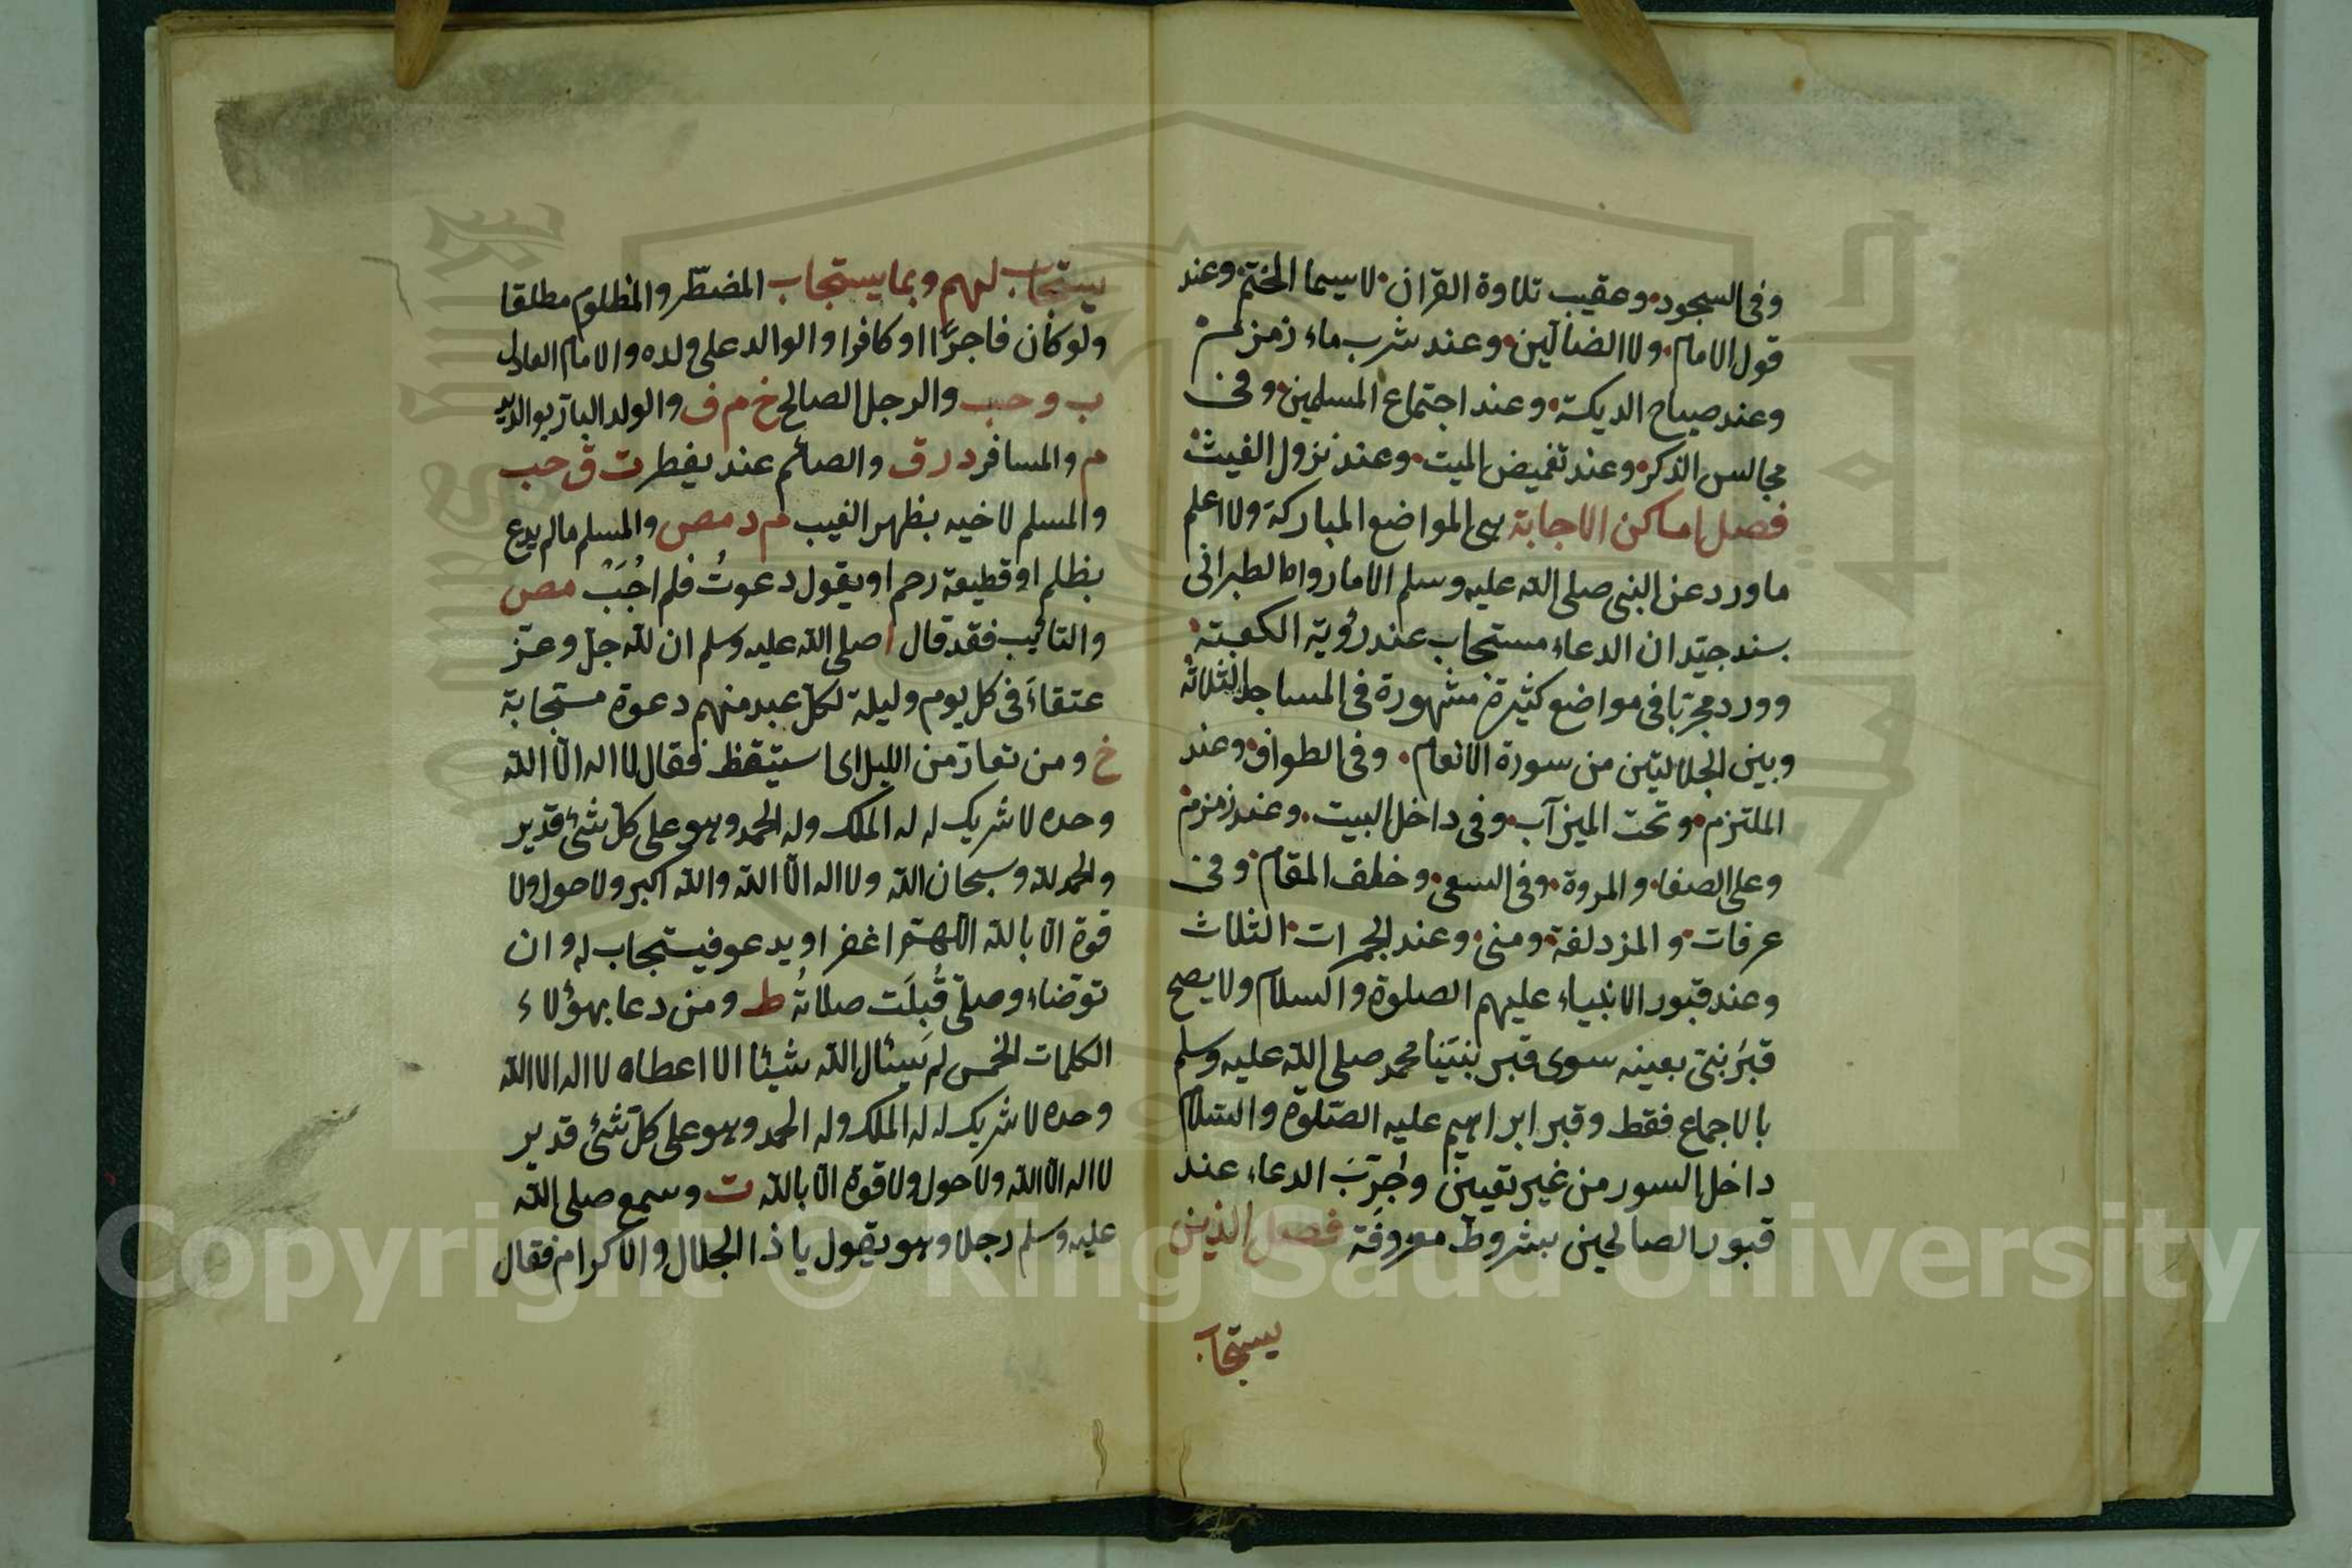 وفى السجود وعقيب تلاوة القرآن لاسيما الختم وعند
قول الامام ولا الضآلين وعند شرب ماء زمزم
وعند صياح الديكة وعند اجتماع المسلمين وفى
مجالس الذكر وعند تغميض الميت وعند نزول الغيث
فصل اماكن الاجابة هى المواضع المباركة ولا اعلم
ما ورد عن النبى صلى الله عليه وسلم الا ما رواه الطبرانى
بسند جيّد ان الدعاء مستجاب عند رؤية الكعبة
وورد مجربا فى مواضع كثيرة مشهورة فى المساجد الثلاثة
وبين الجلالتين من سورة الانعام وفى الطواف وعند
الملتزم وتحت الميزآب وفى داخل البيت وعند زمزم
وعلى الصفا والمروة وفى السعى وخلف المقام وفى
عرفات والمزدلفة ومنى وعند الجمرات الثلاث
وعند قبور الانبياء عليهم الصلوة والسلام ولا يصح
قبر نبىّ بعينه سوى قبر نبيّنا محمد صلى الله عليه وسلم
بالاجماع فقط وقبر ابراهيم عليه الصّلوة والسّلام
داخل السور من غير تعيين وجُرّبَ الدعاء عند
قبور الصالحين بشروط معروفة فصل الذين
يستجاب
يستجاب لهم وبما يستجاب المضطّر والمظلوم مطلقا
ولو كان فاجرًا او كافرا والوالد على ولده والامام العادل
ب و حب والرجل الصالح خ م ف والولد البارّ بوالديه
م والمسافر د ر ق والصائم عند يفطر ت ق حب
والمسلم لاخيه بظهر الغيب م د مص والمسلم مالم يدع
بظلم او قطيعة رحم او يقول دعوتُ فلم اُجَبْ مص
والتائب فقد قال صلى الله عليه وسلم ان لله جلّ وعزّ
عتقاءَ فى كل يوم وليلة لكلّ عبد منهم دعوة مستجابة
خ ومن تعارّ من الليل اى استيقظ فقال لا اله الّا الله
وحده لا شريك له له الملك وله الحمد وهو على كلّ شئ قدير
والحمد لله وسبحان الله ولا اله الّا الله والله اكبر ولا حول ولا
قوة الّا بالله اللّهمّ اغفر او يدعو فيستجاب له وان
توضاء وصلّى قُبِلَت صلاتُه ط ومن دعا بهؤلاء
الكلمات الخمس لم يَسِئال الله شيئا الا اعطاه لا اله الا الله
وحده لا شريك له له الملك وله الحمد وهو على كلّ شئ قدير
لا اله الّا الله ولا حول ولا قوة الّا بالله ت وسمع صلى الله
عليه وسلم رجلا وهو يقول يا ذا الجلال والاكرام فقال
Copyright © King Saud University